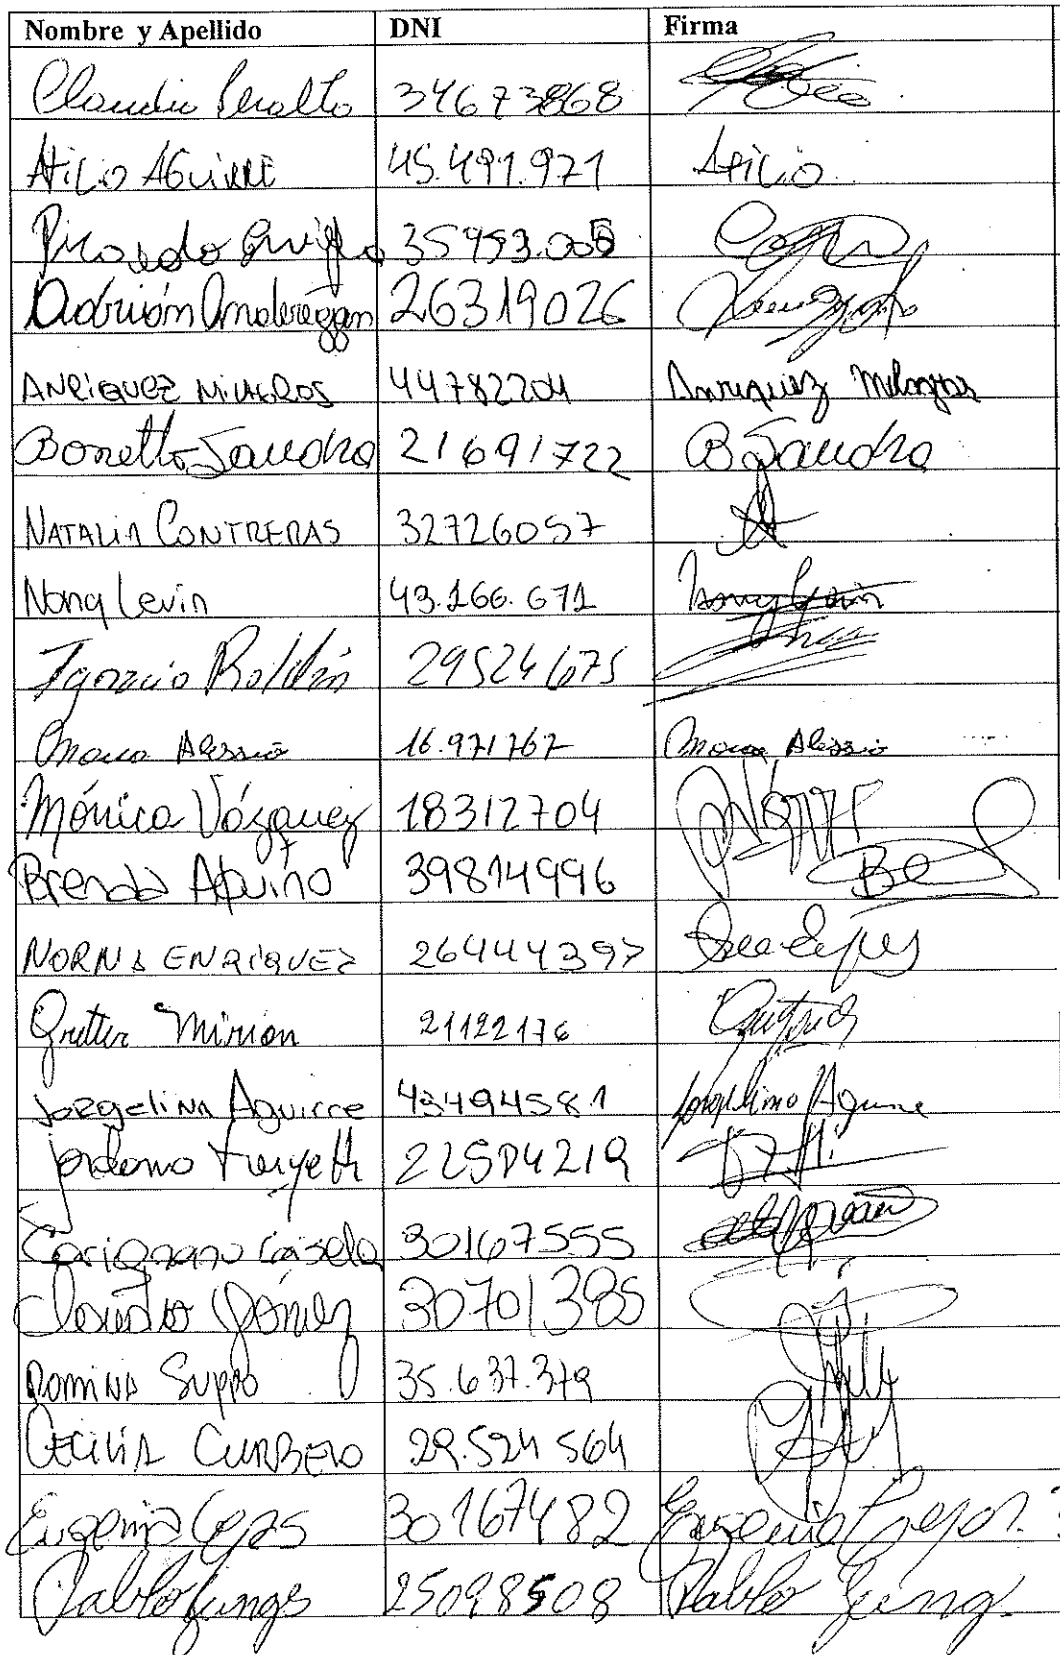 Nombre y Apellido DNI Firma
Claudio Peralta 34673868
Atilio AGUIRRE 45.491.971 Atilio
Ricardo 35953.005
Adrián Andereggen 26319026
ANRIQUEZ MILAGROS 44782204 Anriquez Milagros
Bonetto Sandra 21691722 B Sandra
NATALIA CONTRERAS 32726057
Nona Levin 43.166.671 Nona Levin
Ignacio Roldán 29524675
Alessio 16.971767 Alessio
Mónica Vázquez 18312704
Brenda Aquino 39814996 Be
NORMA ENRIQUEZ 26444397
Grutter Mirian 21122176
Jorgelina Aguirre 43494581 Jorgelina Aguirre
22504219
Carignano Gisela 30167555
Claudio Gómez 30701385
Romina Suppo 35.637.379
CECILIA CURBELO 29.524 564
Eugenia Crepos 30167482 Eugenia
Pablo Junges 25098508 Pablo Jung.